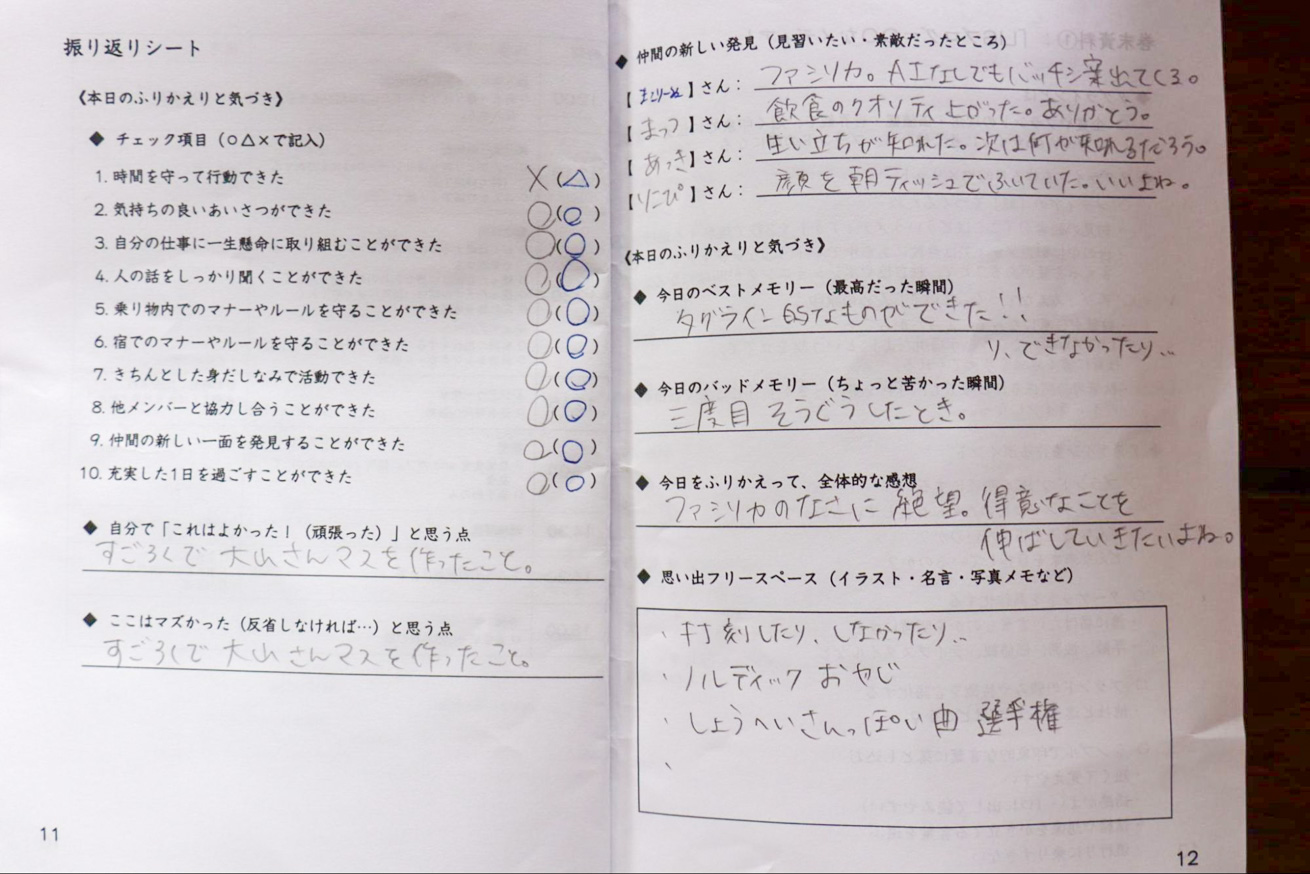 振り返りシート
《本日のふりかえりと気づき》
◆ チェック項目（○△×で記入）
1. 時間を守って行動できた ×(△)
2. 気持ちの良いあいさつができた ○(○)
3. 自分の仕事に一生懸命に取り組むことができた ○(○)
4. 人の話をしっかり聞くことができた ○(○)
5. 乗り物内でのマナーやルールを守ることができた ○(○)
6. 宿でのマナーやルールを守ることができた ○(○)
7. きちんとした身だしなみで活動できた ○(○)
8. 他メンバーと協力し合うことができた ○(○)
9. 仲間の新しい一面を発見することができた ○(○)
10. 充実した1日を過ごすことができた ○(○)
◆ 自分で「これはよかった！（頑張った）」と思う点
すごろくで大山さんマスを作ったこと。
◆ ここはマズかった（反省しなければ…）と思う点
すごろくで大山さんマスを作ったこと。
11
◆ 仲間の新しい発見（見習いたい・素敵だったところ）
【まこりーぬ】さん： ファシリカ。AIなしでもバッチシ案出てくる。
【まっつ】さん： 飲食のクオリティ上がった。ありがとう。
【あっき】さん： 生い立ちが知れた。次は何が知れるだろう。
【りこぴ】さん： 顔を朝ティッシュでふいていた。いいよね。
《本日のふりかえりと気づき》
◆ 今日のベストメモリー（最高だった瞬間）
タグライン的なものができた！！
り、できなかったり…
◆ 今日のバッドメモリー（ちょっと苦かった瞬間）
三度目そうぐうしたとき。
◆ 今日をふりかえって、全体的な感想
ファシリカのなさに絶望。得意なことを
伸ばしていきたいよね。
◆ 思い出フリースペース（イラスト・名言・写真メモなど）
・打刻したり、しなかったり…
・ノルディックおやじ
・しょうへいさんっぽい曲選手権
・
12